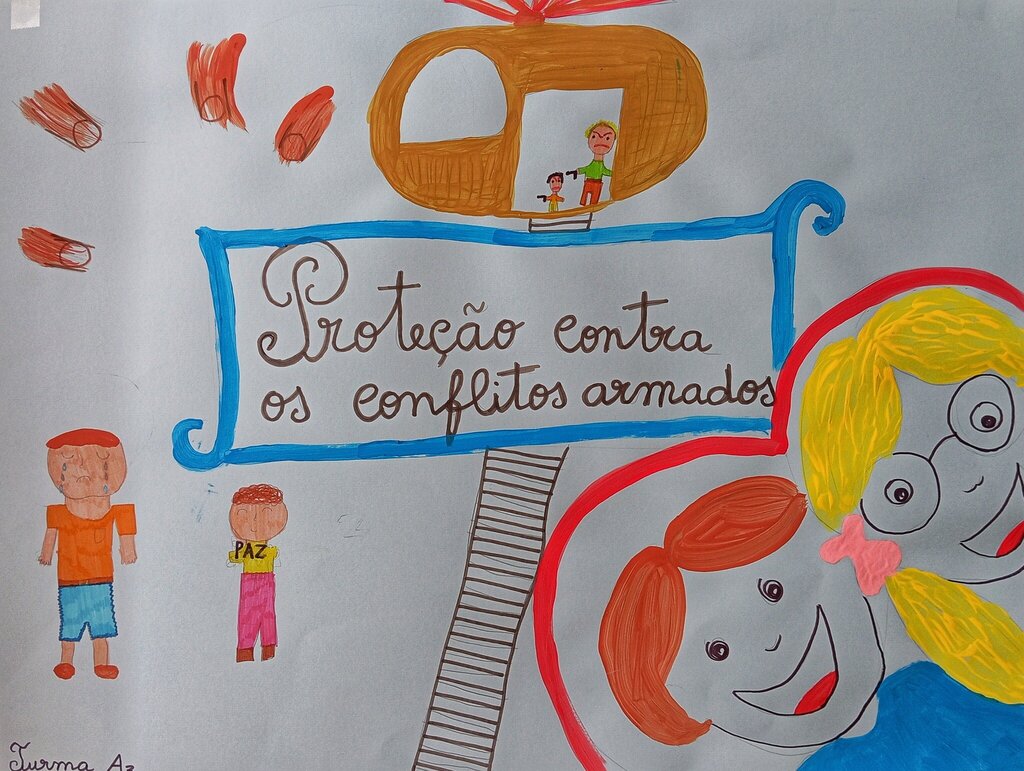 Proteção contra
os conflitos armados
PAZ
Turma A2